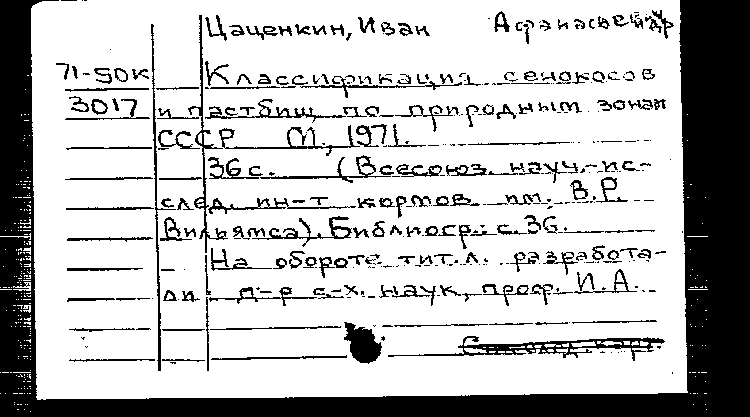 Цаценкин, Иван Афанасьевич и др
71-50к Классификация сенокосов
3017 и пастбищ по природным зонам
СССР М., 1971.
36 с. (Всесоюз. науч.-ис-
след. ин-т кормов им. В.Р.
Вильямса). Библиогр.: с. 36.
На обороте тит.л. разработа-
ли: д-р с-х. наук, проф. И.А.